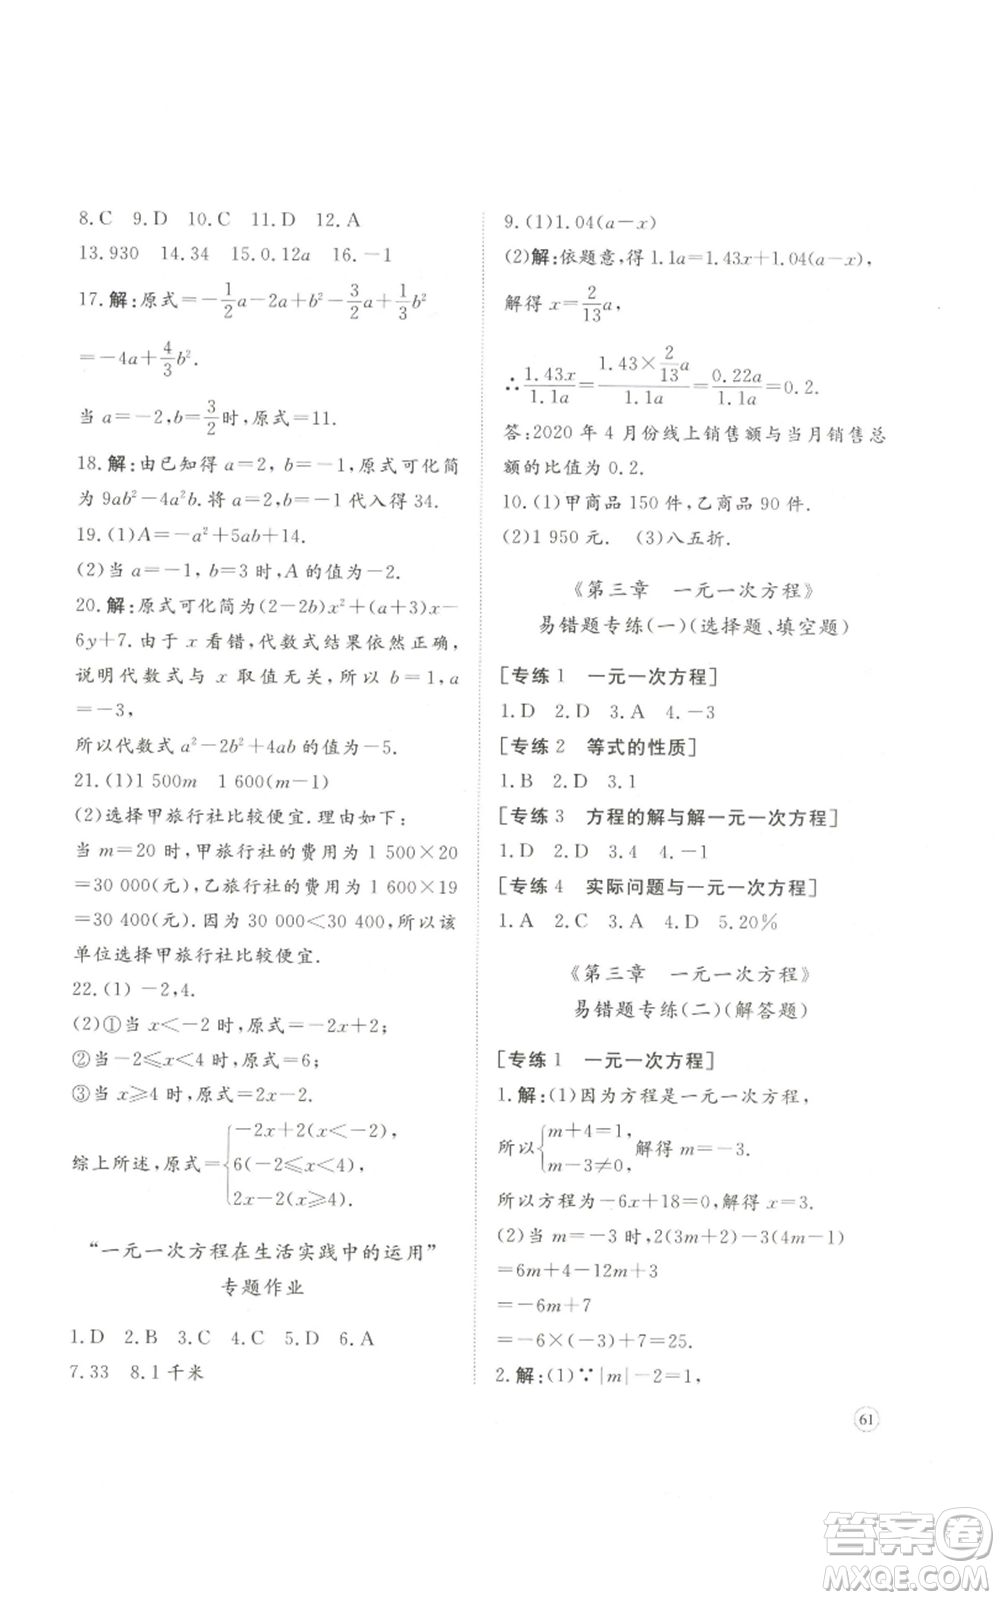 8.C 9.D 10.C 11.D 12.A
13.930 14.34 15.0.12a 16.-1
17.解:原式=-1/2a-2a+b²-3/2a+1/3b²
=-4a+4/3b².
当 a=-2,b=3/2时,原式=11.
18.解:由已知得 a=2, b=-1,原式可化简
为 9ab²-4a²b.将 a=2,b=-1代入得 34.
19.(1)A=-a²+5ab+14.
(2)当 a=-1, b=3 时,A 的值为-2.
20.解:原式可化简为(2-2b)x²+(a+3)x-
6y+7. 由于 x 看错,代数式结果依然正确,
说明代数式与 x 取值无关,所以 b=1,a
=-3,
所以代数式 a²-2b²+4ab 的值为-5.
21.(1)1 500m 1 600(m-1)
(2)选择甲旅行社比较便宜.理由如下:
当 m=20 时,甲旅行社的费用为 1 500×20
=30 000(元),乙旅行社的费用为 1 600×19
=30 400(元),因为 30 000<30 400,所以该
单位选择甲旅行社比较便宜.
22.(1) -2,4.
(2)①当 x<-2 时,原式=-2x+2;
②当-2≤x<4 时,原式=6;
③当 x≥4 时,原式=2x-2.
综上所述,原式={-2x+2(x<-2),
6(-2≤x<4),
2x-2(x≥4).
“一元一次方程在生活实践中的运用”
专题作业
1.D 2.B 3.C 4.C 5.D 6.A
7.33 8.1 千米
9.(1)1.04(a-x)
(2)解:依题意,得 1.1a=1.43x+1.04(a-x),
解得 x=2/13a,
∴1.43x/1.1a=1.43×2/13a/1.1a=0.22a/1.1a=0.2.
答:2020 年 4 月份线上销售额与当月销售总
额的比值为 0.2.
10.(1)甲商品 150 件,乙商品 90 件.
(2)1 950 元. (3)八五折.
《第三章 一元一次方程》
易错题专练(一)(选择题、填空题)
[专练1 一元一次方程]
1.D 2.D 3.A 4.-3
[专练2 等式的性质]
1.B 2.D 3.1
[专练3 方程的解与解一元一次方程]
1.D 2.D 3.4 4.-1
[专练4 实际问题与一元一次方程]
1.A 2.C 3.A 4.D 5.20%
《第三章 一元一次方程》
易错题专练(二)(解答题)
[专练1 一元一次方程]
1.解:(1)因为方程是一元一次方程,
所以{m+4=1, m-3≠0, 解得 m=-3.
所以方程为-6x+18=0,解得 x=3.
(2)当 m=-3 时,2(3m+2)-3(4m-1)
=6m+4-12m+3
=-6m+7
=-6×(-3)+7=25.
2.解:(1)∵|m|-2=1,
61
答案卷